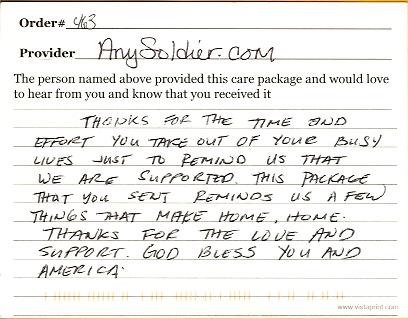 Order# 463
Provider AnySoldier.com
The person named above provided this care package and would love
to hear from you and know that you received it
THANKS FOR THE TIME AND
EFFORT YOU TAKE OUT OF YOUR BUSY
LIVES JUST TO REMIND US THAT
WE ARE SUPPORTED. THIS PACKAGE
THAT YOU SENT REMINDS US A FEW
THINGS THAT MAKE HOME, HOME.
THANKS FOR THE LOVE AND
SUPPORT. GOD BLESS YOU AND
AMERICA.
www.vistaprint.com